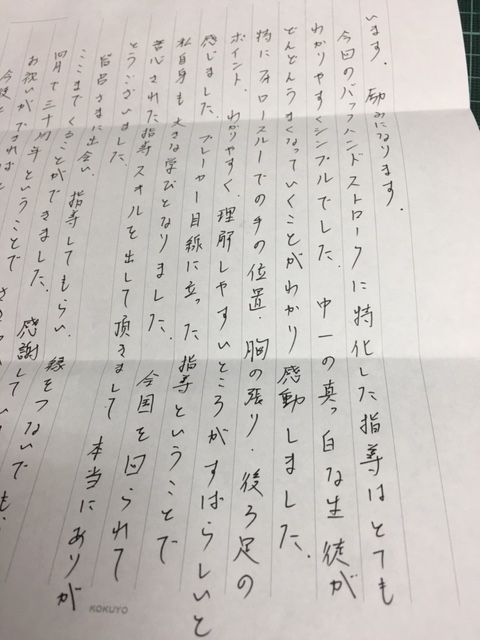 います。励みになります。
今回のバックハンドストロークに特化した指導はとても
わかりやすくシンプルでした。中一の真っ白な生徒が
どんどんうまくなっていくことがわかり感動しました。
特にフォロースルーでの手の位置・胸の張り・後ろ足の
ポイント、わかりやすく、理解しやすいところがすばらしいと
感じました。プレーヤー目線に立った指導ということで
私自身も大きな学びとなりました。全国を回られて
苦心された指導スキルを出して頂きまして本当にありが
とうございました。
皆呂さまに出会い、指導してもらい、縁をつないで
ここまでくることができました。感謝しています。
四月で三十周年ということで
お祝いができれば
今後と
KOKUYO